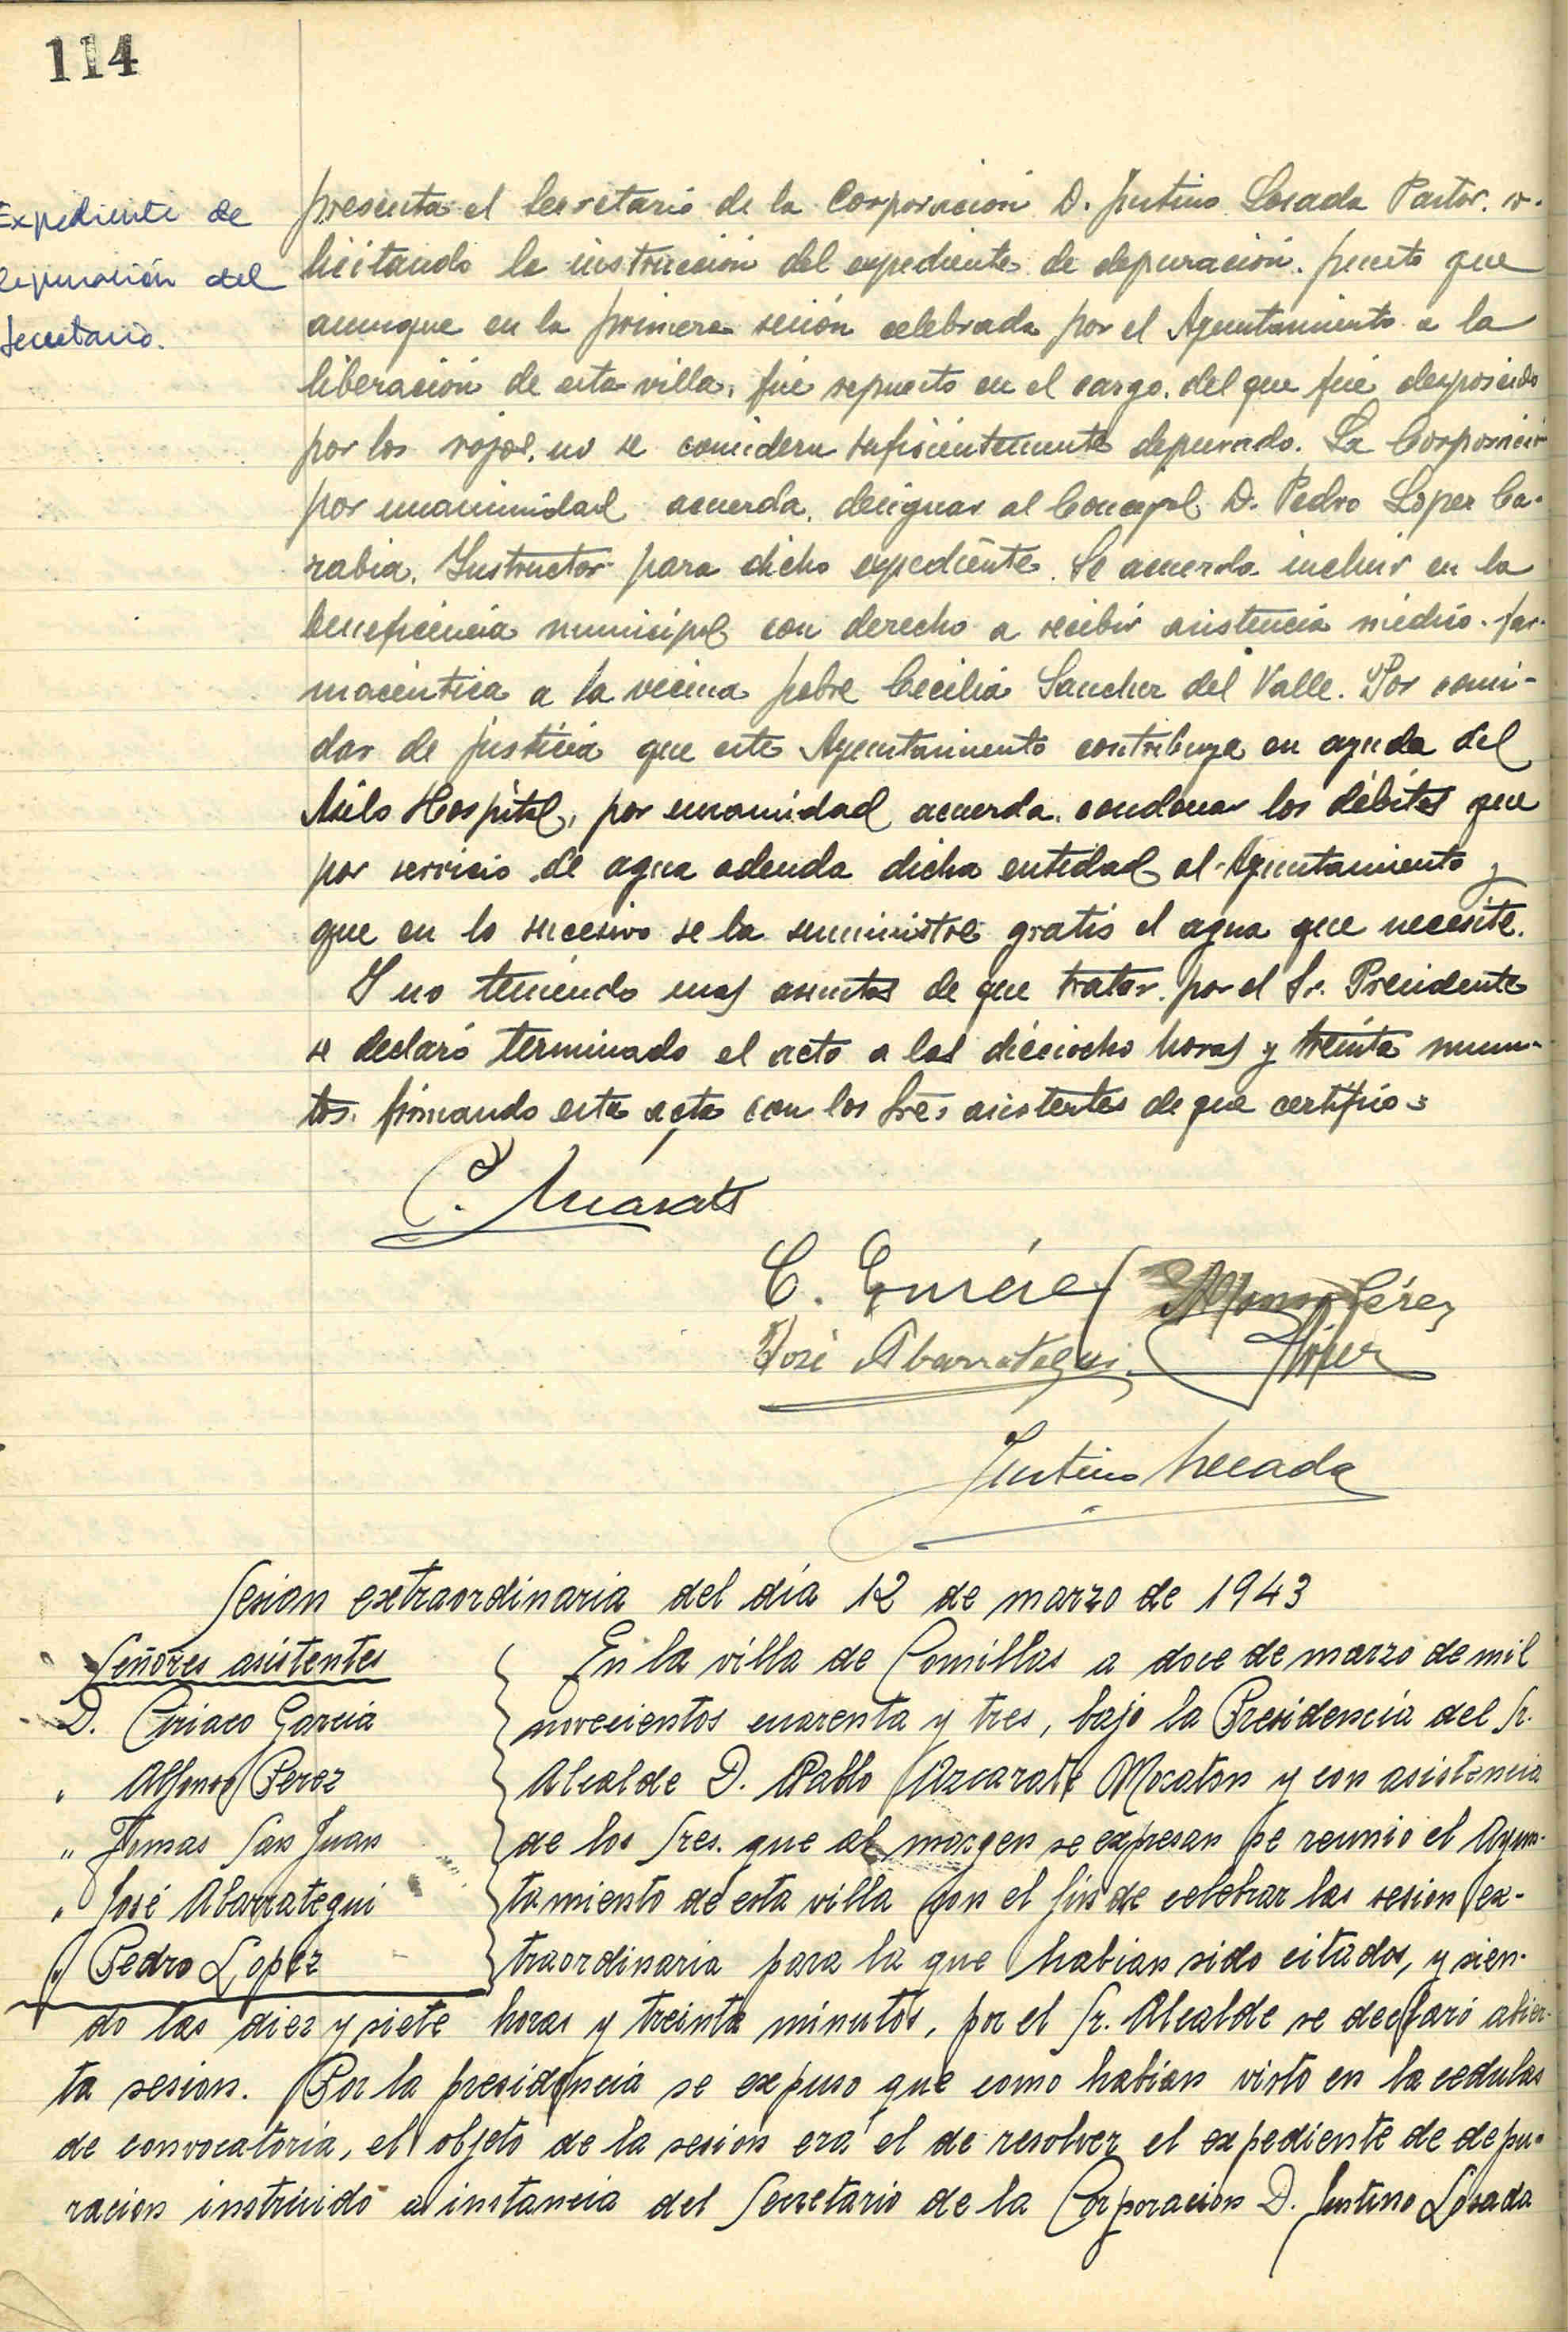 114
Expediente de
depuración del
Secretario.
presenta el Secretario de la Corporación D. Justino Losada Pastor, so-
licitando la instrucción del expediente de depuración, puesto que
aunque en la primera sesión celebrada por el Ayuntamiento a la
liberación de esta villa, fué repuesto en el cargo, del que fué desposeido
por los rojos, no se considera suficientemente depurado. La Corporación
por unanimidad acuerda, designar al Concejal D. Pedro Lopez Ca-
rabia, Instructor para dicho expediente. Se acuerda incluir en la
beneficencia municipal con derecho a recibir asistencia médico-far-
macéutica a la vecina pobre Cecilia Sanchez del Valle. Por consi-
dar de justicia que este Ayuntamiento contribuya en ayuda del
Asilo Hospital, por unamidad acuerda, condonar los débitos que
por servicio de agua adeuda dicha entidad al Ayuntamiento y
que en lo sucesivo se la suministre gratis el agua que necesite.
Y no teniendo mas asuntos de que tratar, por el Sr. Presidente
se declaró terminado el acto a las dieciocho horas y treinta minu-
tos, firmando esta acta con los Sres asistentes de que certifico =
P. Azcárate
C. García Alfonso Pérez
José Abarrategui López
Justino Losada
Sesion extraordinaria del día 12 de marzo de 1943
Señores asistentes
D. Ciriaco Garcia
" Alfonso Perez
" Tomas San Juan
" José Abarrategui
" Pedro Lopez
En la villa de Comillas a doce de marzo de mil
novecientos cuarenta y tres, bajo la Presidencia del Sr.
Alcalde D. Pablo Azcarate Mocaton y con asistencia
de los Sres. que al margen se expresan se reunio el Ayun-
tamiento de esta villa con el fin de celebrar las sesion ex-
traordinaria para la que habian sido citados, y sien-
do las diez y siete horas y treinta minutos, por el Sr. Alcalde se declaró abier-
ta sesion. Por la presidencia se expuso que como habian visto en la cedulas
de convocatoria, el objeto de la sesion era el de resolver el expediente de depu-
racion instruido a instancia del Secretario de la Corporacion D. Justino Losada